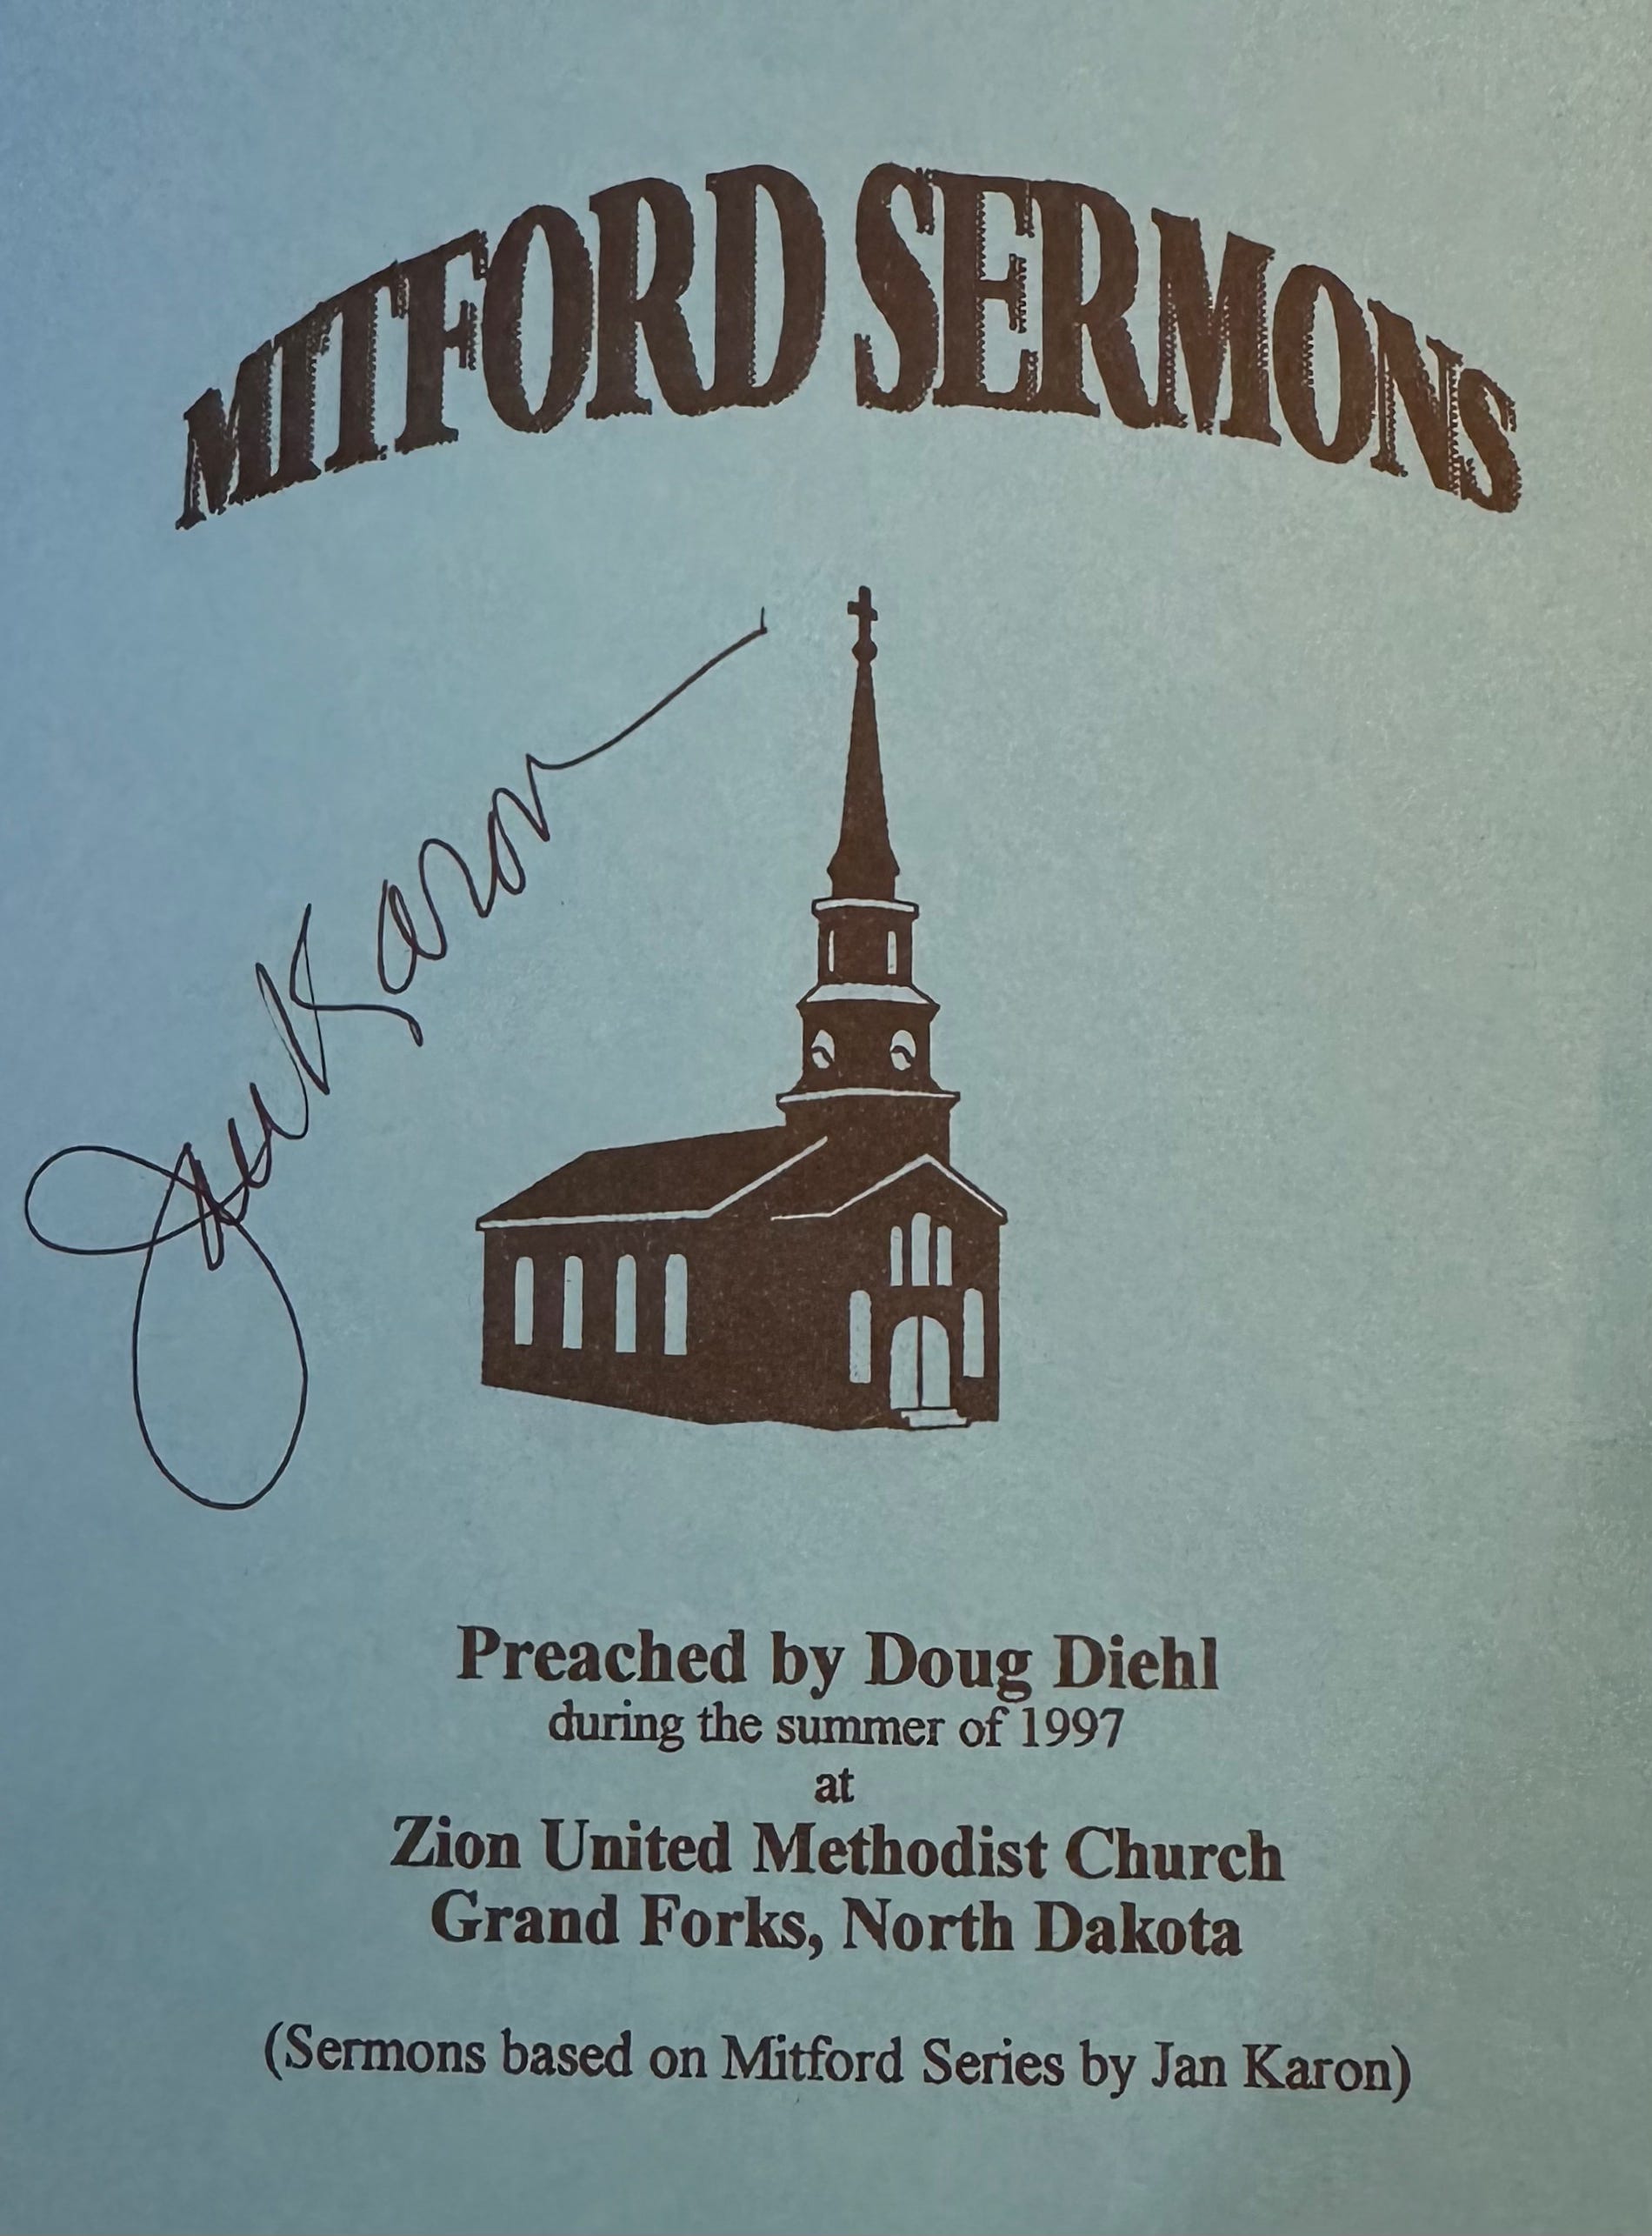 MITFORD SERMONS
Jan Karon
Preached by Doug Diehl
during the summer of 1997
at
Zion United Methodist Church
Grand Forks, North Dakota
(Sermons based on Mitford Series by Jan Karon)